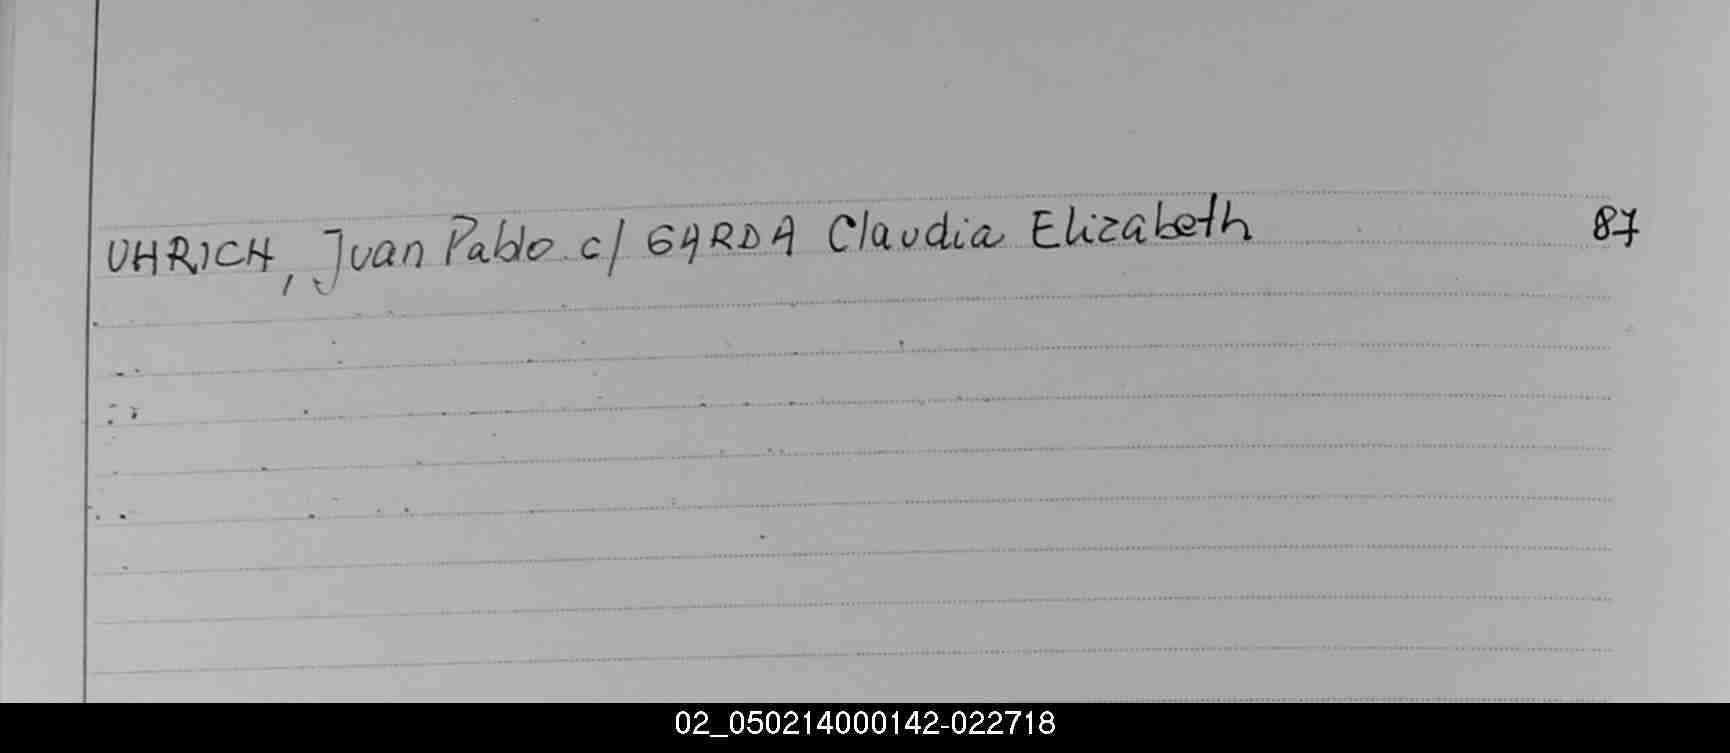 UHRICH, Juan Pablo c/ GARDA Claudia Elizabeth 87
02_050214000142-022718